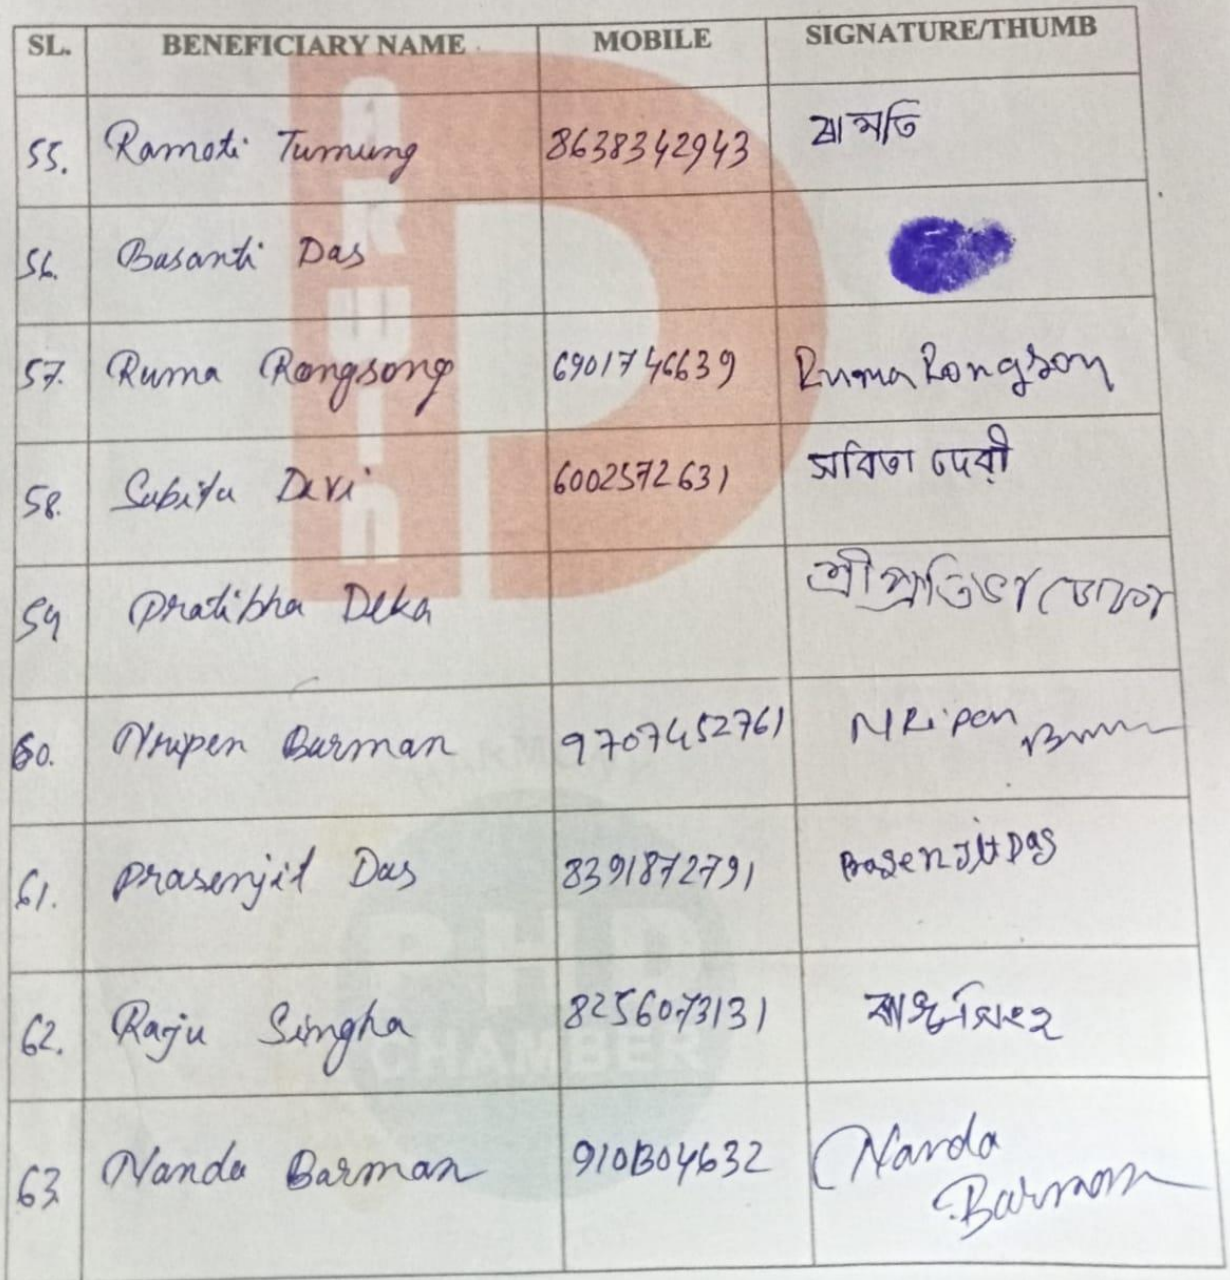 SL. BENEFICIARY NAME MOBILE SIGNATURE/THUMB
55. Ramoti Tumung 8638342943 ৰামতি
56. Basanti Das
57. Ruma Rongsong 6901746639 Ruma Rongson
58. Sabita Devi 6002572631 সবিতা দেৱী
59 Pratibha Deka শ্ৰী প্ৰতিভা ডেকা
60. Nripen Burman 9707452761 NRipen
61. Prasenjit Das 8391872791 BasenJit Das
62. Raju Singha 8256073131 ৰাজু সিংহ
63. Nanda Barman 9101304632 Nanda
Barman
ARWIN
D
PHD
CHAMBER